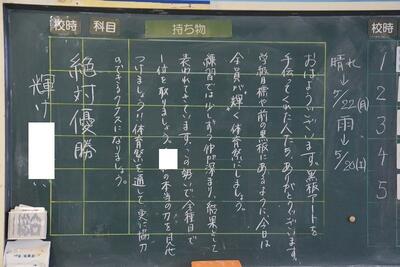 校時
科目
持ち物
校時
晴れ→5/22(月)
雨→5/20(土)
1
2
3
4
5
おはようございます。黒板アートを
手伝ってくれた人たち、ありがとうございます。
学級目標や前の黒板にあるように、今日は
全員が輝く体育祭にしましょう。
練習では少しずつ仲が深まり、結果として
表われてきています。この勢いで全種目で
1位を取りましょう。 の本当の力を見せ
つけましょう!!体育祭を通して、更に協力
のできるクラスになりましょう。
絶対優勝
輝け い